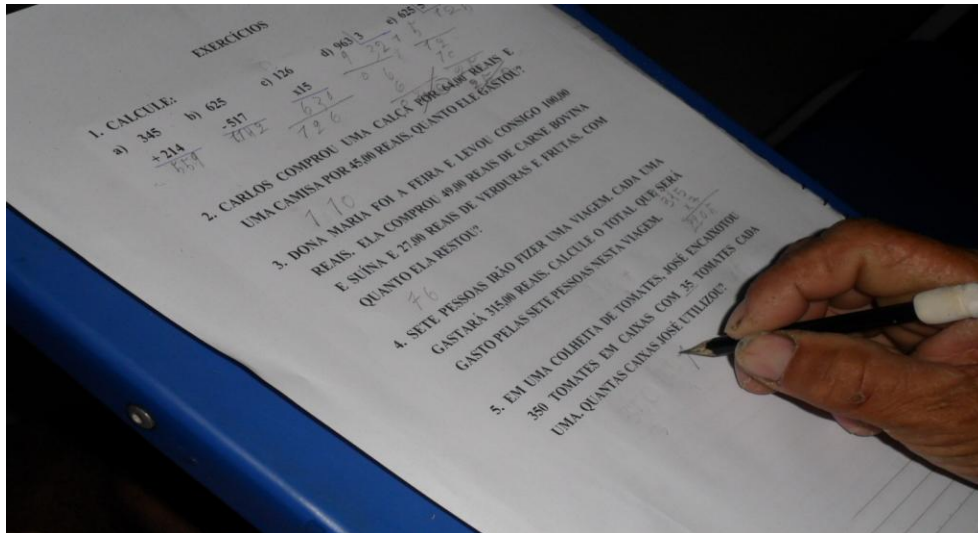 EXERCÍCIOS
1. CALCULE:
a) 345 b) 625 c) 126 d) 963 3 e) 625 5
+ 214 - 517 x15
559
630
126
2. CARLOS COMPROU UMA CALÇA POR 64,00 REAIS E
UMA CAMISA POR 45,00 REAIS. QUANTO ELE GASTOU?
110
3. DONA MARIA FOI A FEIRA E LEVOU CONSIGO 100,00
REAIS. ELA COMPROU 49,00 REAIS DE CARNE BOVINA
E SUÍNA E 27,00 REAIS DE VERDURAS E FRUTAS. COM
QUANTO ELA RESTOU?
76
4. SETE PESSOAS IRÃO FIZER UMA VIAGEM. CADA UMA
GASTARÁ 315,00 REAIS. CALCULE O TOTAL QUE SERÁ
GASTO PELAS SETE PESSOAS NESTA VIAGEM.
315
5. EM UMA COLHEITA DE TOMATES, JOSÉ ENCAIXOTOU
350 TOMATES EM CAIXAS COM 35 TOMATES CADA
UMA. QUANTAS CAIXAS JOSÉ UTILIZOU?